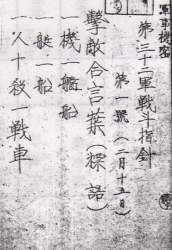 軍事機密
第三十二軍戰斗指針
第一號(二月十五日)
擊敵合言葉(標語)
一機一艦船
一艇一船
一人十殺一戰車